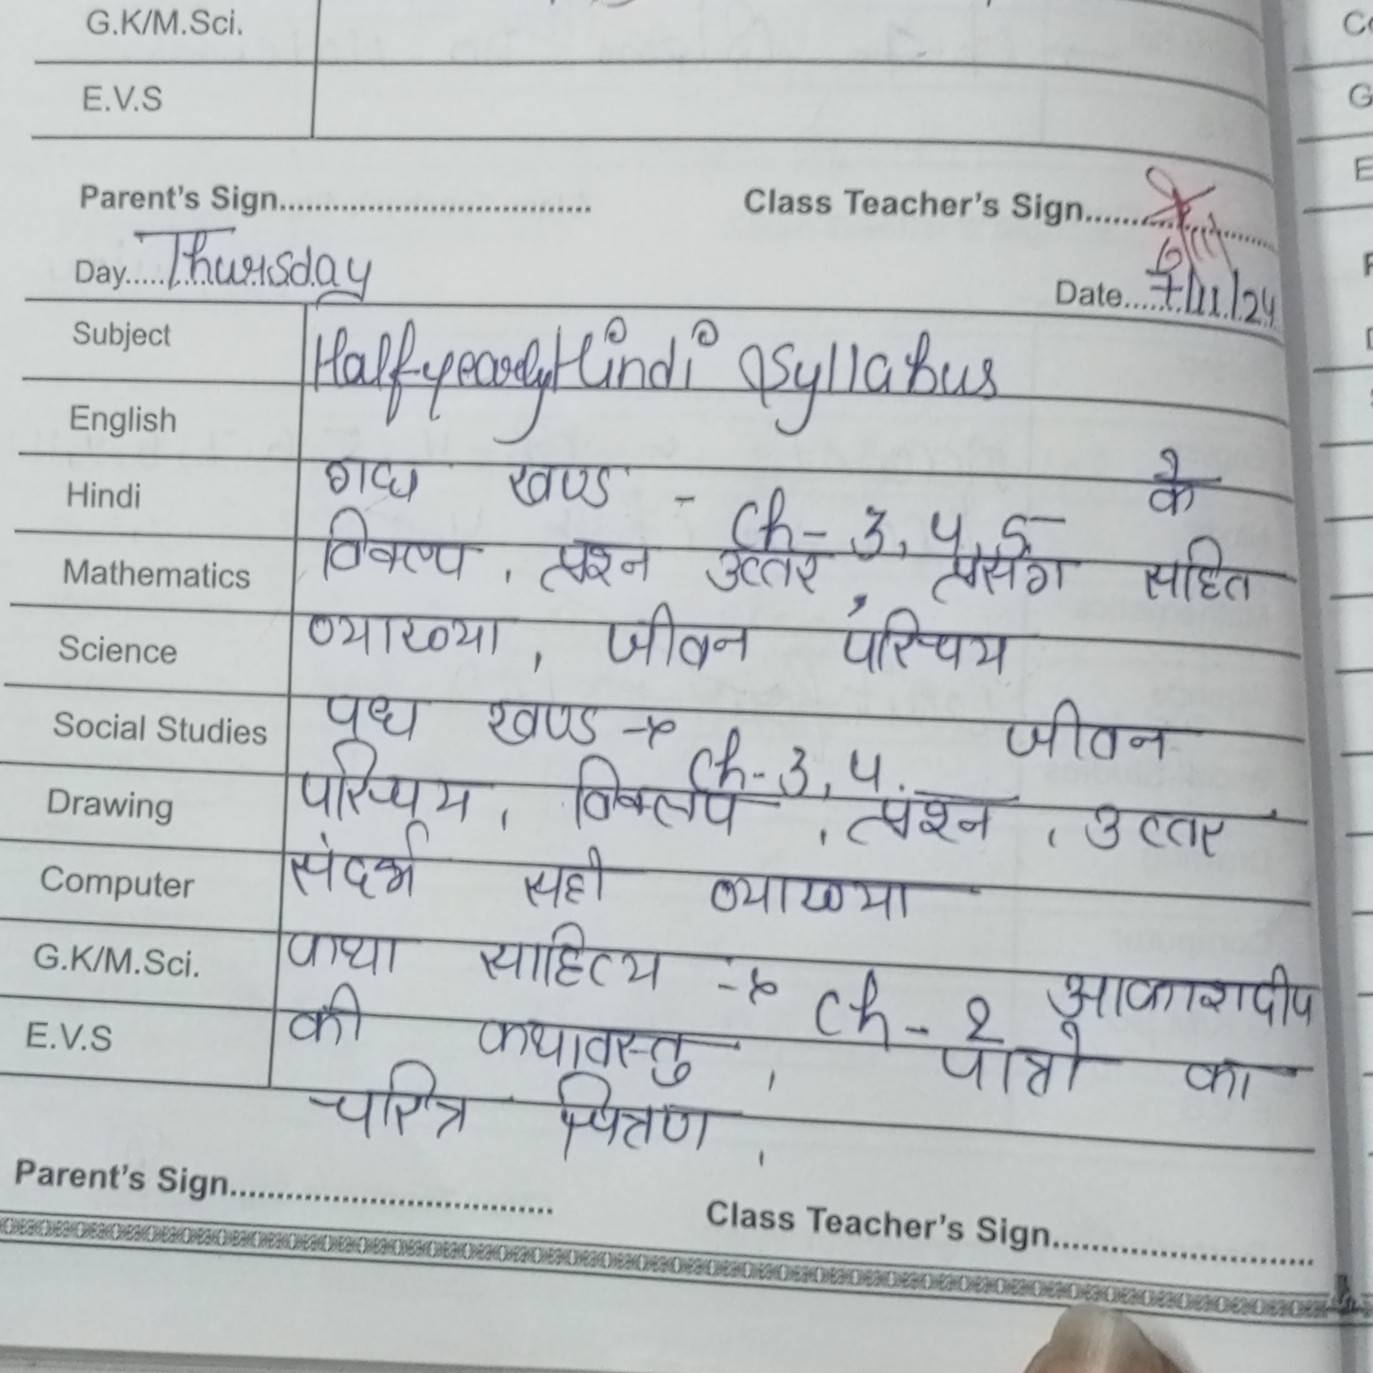 G.K/M.Sci.
E.V.S
Parent's Sign................................
Class Teacher's Sign..................
Day..... Thursday
Date...... 7/11/24
Subject Half yearly Hindi Syllabus
English
Hindi गद्य खण्ड - Ch- 3, 4, 5 के
Mathematics विकल्प, प्रश्न उत्तर, प्रसंग सहित
Science व्याख्या, जीवन परिचय
Social Studies पद्य खण्ड → Ch- 3, 4. जीवन
Drawing परिचय, विकल्प, प्रश्न, उत्तर
Computer संदर्भ सही व्याख्या
G.K/M.Sci. कथा साहित्य -→ Ch- 2 आकाशदीप
E.V.S की कथावस्तु, पात्रो का
चरित्र चित्रण,
Parent's Sign................................
Class Teacher's Sign..........................